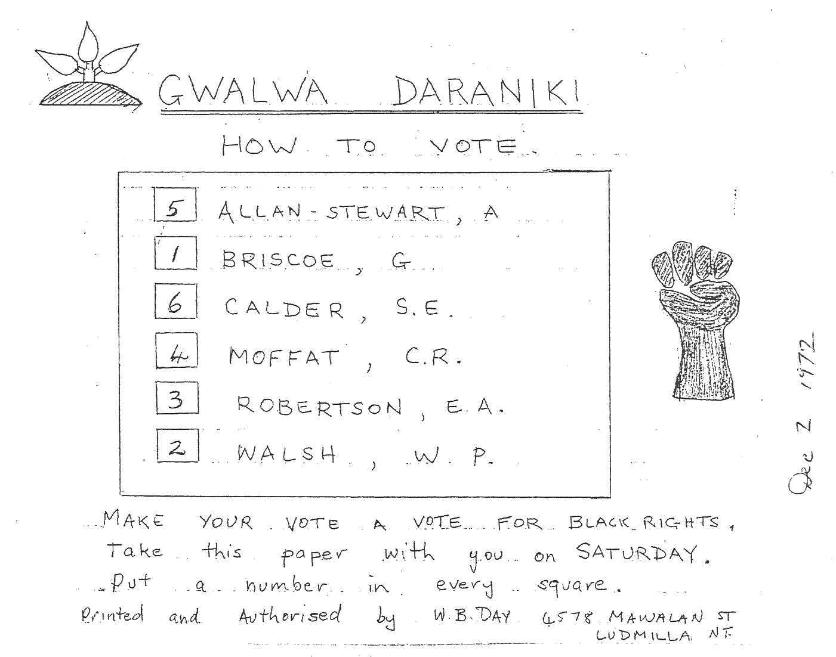 GWALWA DARANIKI
HOW TO VOTE.
5 ALLAN-STEWART, A
1 BRISCOE, G
6 CALDER, S.E.
4 MOFFAT, C.R.
3 ROBERTSON, E.A.
2 WALSH, W. P.
MAKE YOUR VOTE A VOTE FOR BLACK RIGHTS.
Take this paper with you on SATURDAY.
Put a number in every square.
Printed and Authorised by W.B. DAY 4578 MAWALAN ST
LUDMILLA NT.
Dec 2 1972